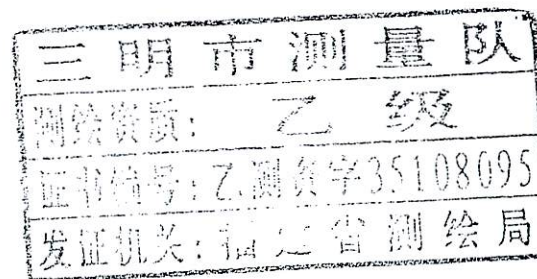 三明市测量队
测绘资质：乙级
证书编号：乙测资字35108095
发证机关：福建省测绘局